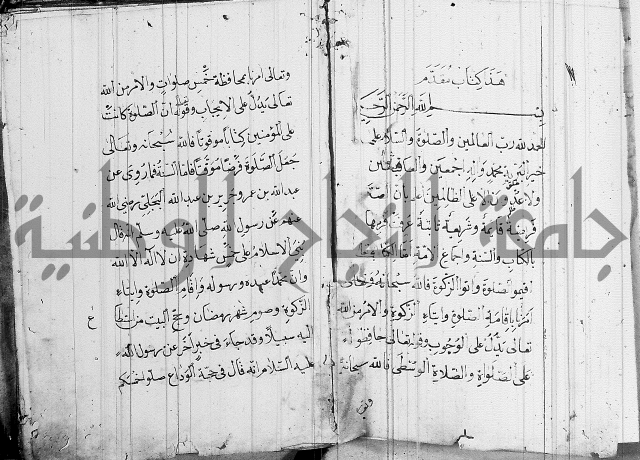 هذا كتاب مقدمه
بسم الله الرحمن الرحيم
الحمد لله رب العالمين والصلوة والسلام على
خير البرية محمد واله اجمعين والعاقبة للمتقين
ولا عدوان الا على الظالمين اعلم بان الصلاة
فريضة قائمة وشريعة ثابتة عرفت فرضيتها
بالكتاب والسنة واجماع الامة اما الكتاب
اقيموا الصلوة واتوا الزكوة فالله سبحانه وتعالى
امرنا باقامة الصلوة وايتاء الزكوة والامر من الله
تعالى يدل على الوجوب وقوله تعالى حافظوا
على الصلوات والصلاة الوسطى فالله سبحانه
وتعالى امرنا بمحافظة خمس صلوات والامر من الله
تعالى يدل على الايجاب وقوله ان الصلوة كانت
على المؤمنين كتابا موقوتا فالله سبحانه وتعالى
جعل الصلوة فرضا موقتا فاما السنة فما روي عن
عبد الله بن عمر وجرير بن عبد الله البجلي رضي الله
عنهم عن رسول الله صلى الله عليه وسلم انه قال
بني الاسلام على خمس شهادة ان لا اله الا الله
وان محمدا عبده ورسوله واقام الصلوة وايتاء
الزكوة وصوم شهر رمضان وحج البيت من استطاع
اليه سبيلا وقد جاء في خبر آخر عن رسول الله
عليه السلام انه قال في حجة الوداع صلوا خمسكم
جامعة النجاح الوطنية